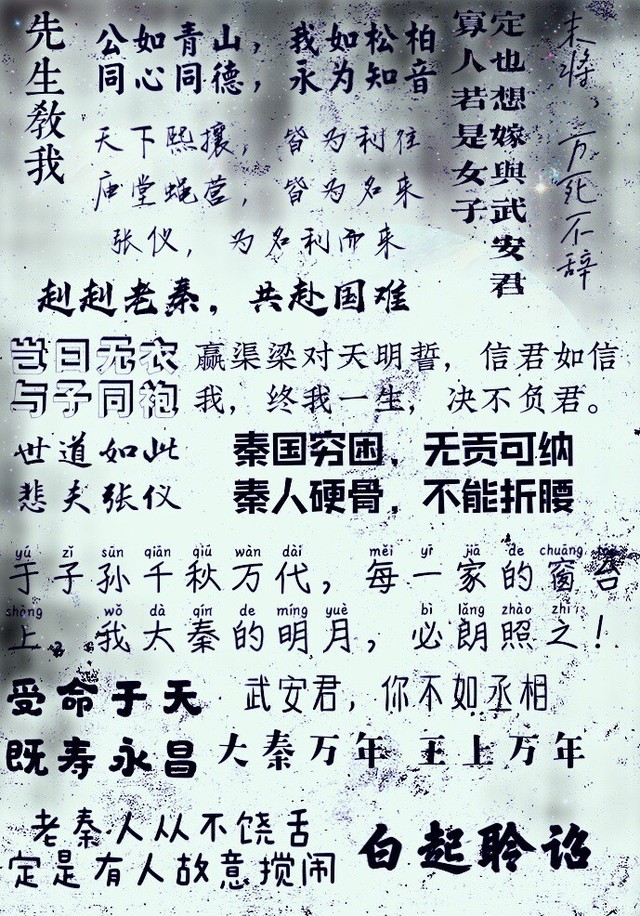 先生教我
公如青山，我如松柏
同心同德，永为知音
定也想嫁與武安君
寡人若是女子
末将，万死不辞
天下熙攘，皆为利往
庙堂蝇营，皆为名来
张仪，为名利而来
赳赳老秦，共赴国难
岂曰无衣
与子同袍
嬴渠梁对天明誓，信君如信
我，终我一生，决不负君。
世道如此
悲夫张仪
秦国穷困，无贡可纳
秦人硬骨，不能折腰
yú zǐ sūn qiān qiū wàn dài měi yī jiā de chuāng
于子孙千秋万代，每一家的窗台
shàng wǒ dà qín de míng yuè bì lǎng zhào zhī
上。我大秦的明月，必朗照之！
受命于天
既寿永昌
武安君，你不如丞相
大秦万年 王上万年
老秦人从不饶舌
定是有人故意搅闹
白起聆诏